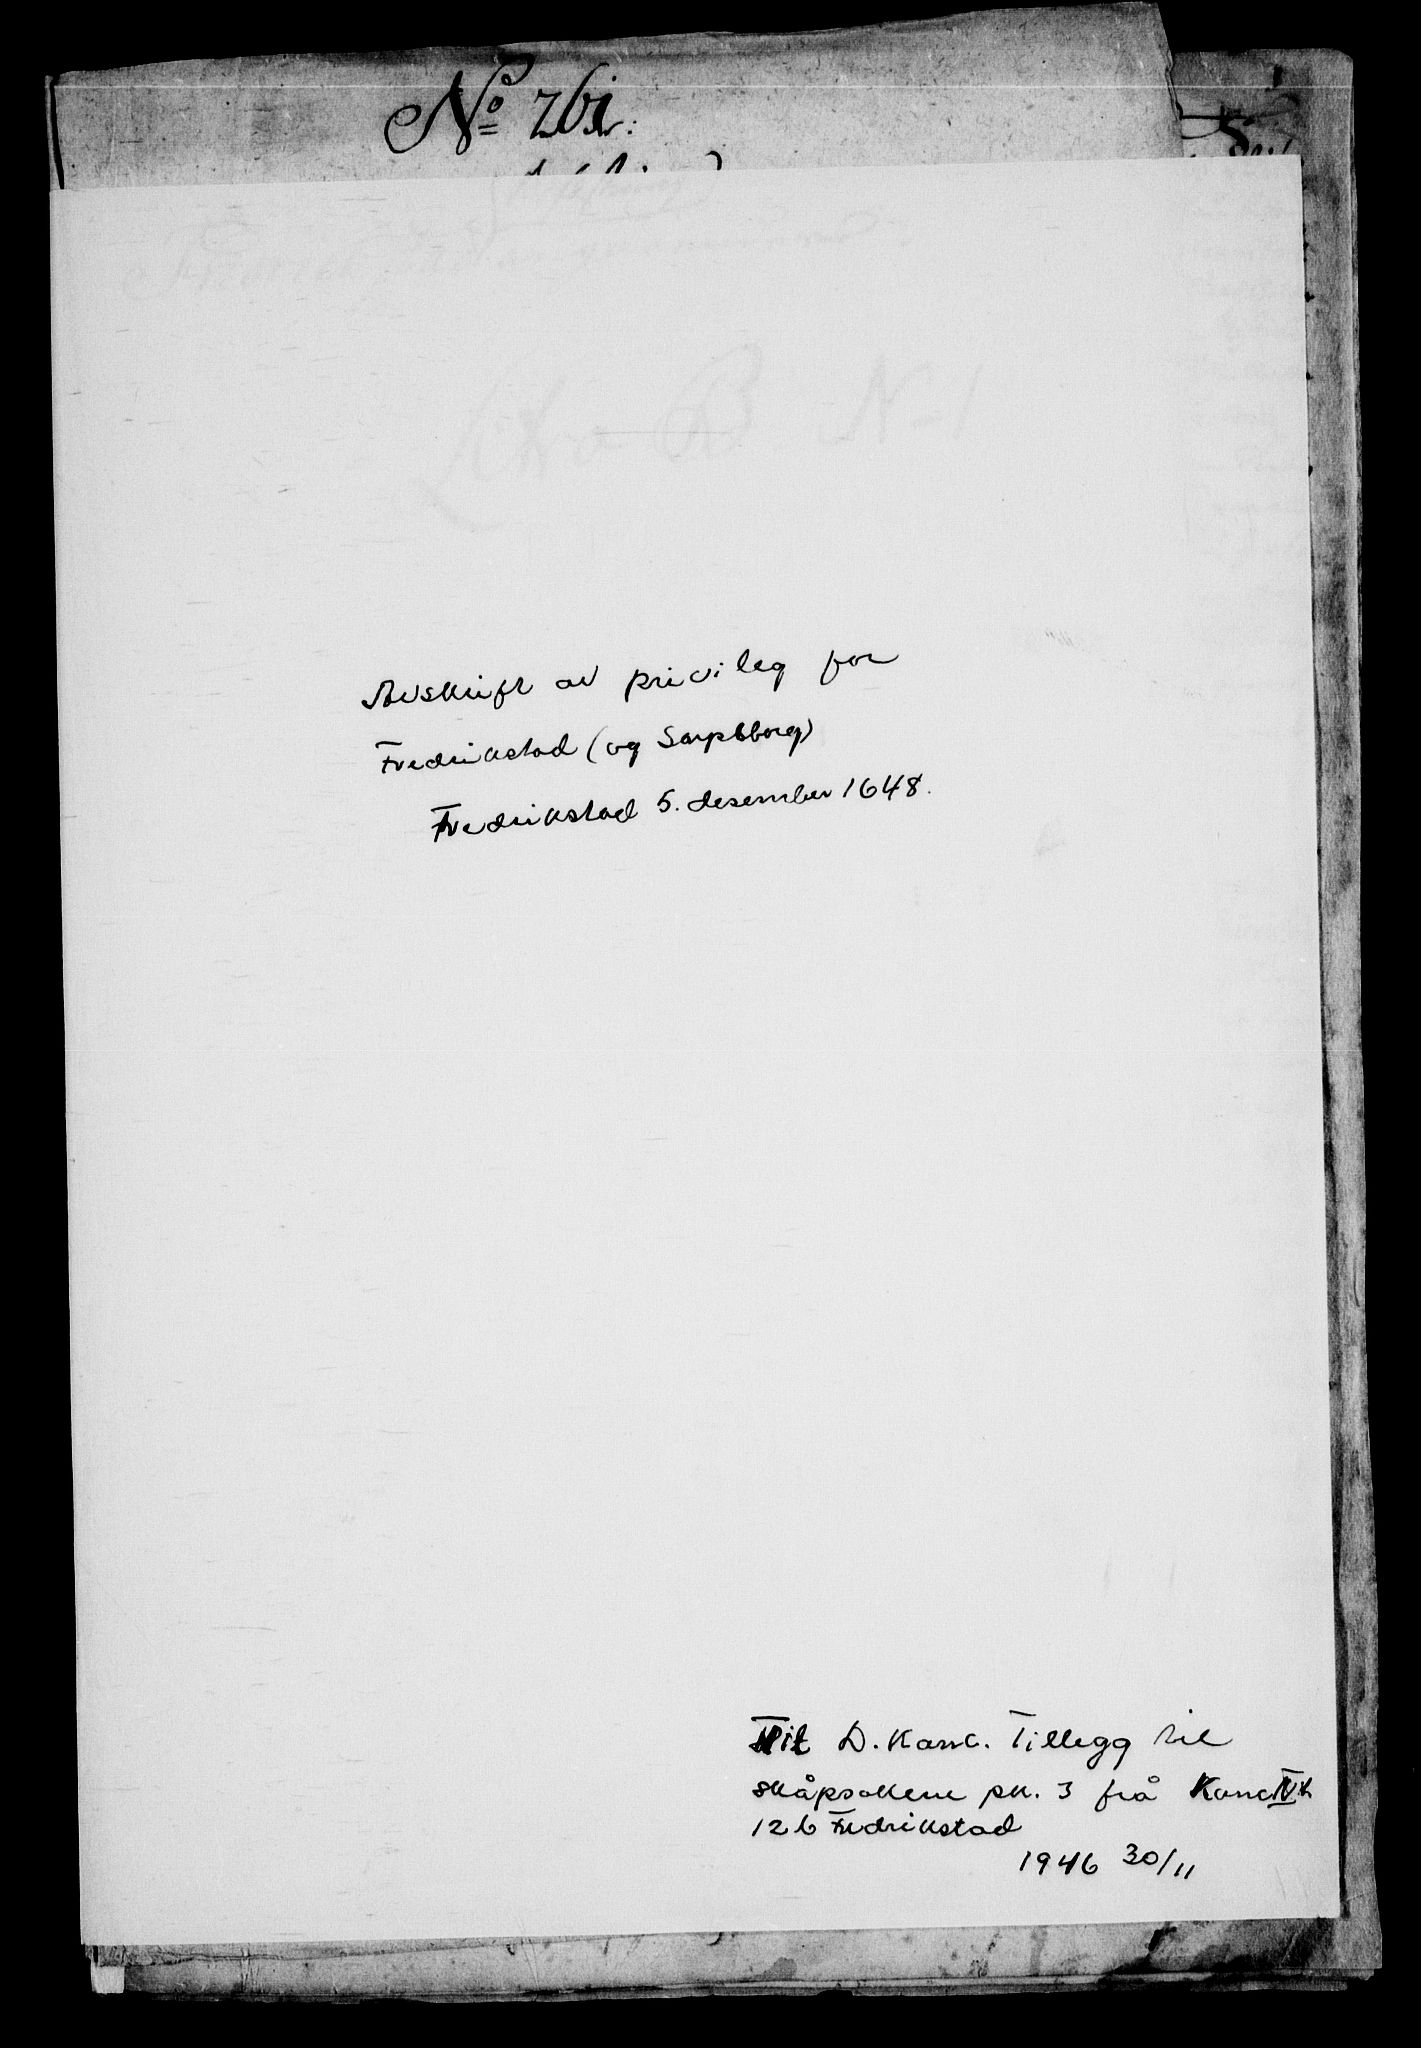 No 261.
Avskrift av privileg for
Fredrikstad (og Sarpsborg)
Fredrikstad 5. desember 1648.
Hit D. Kanc. Tillegg til
skåpsakene pk. 3 frå Kanc IV
12 b Fredrikstad
1946 30/11